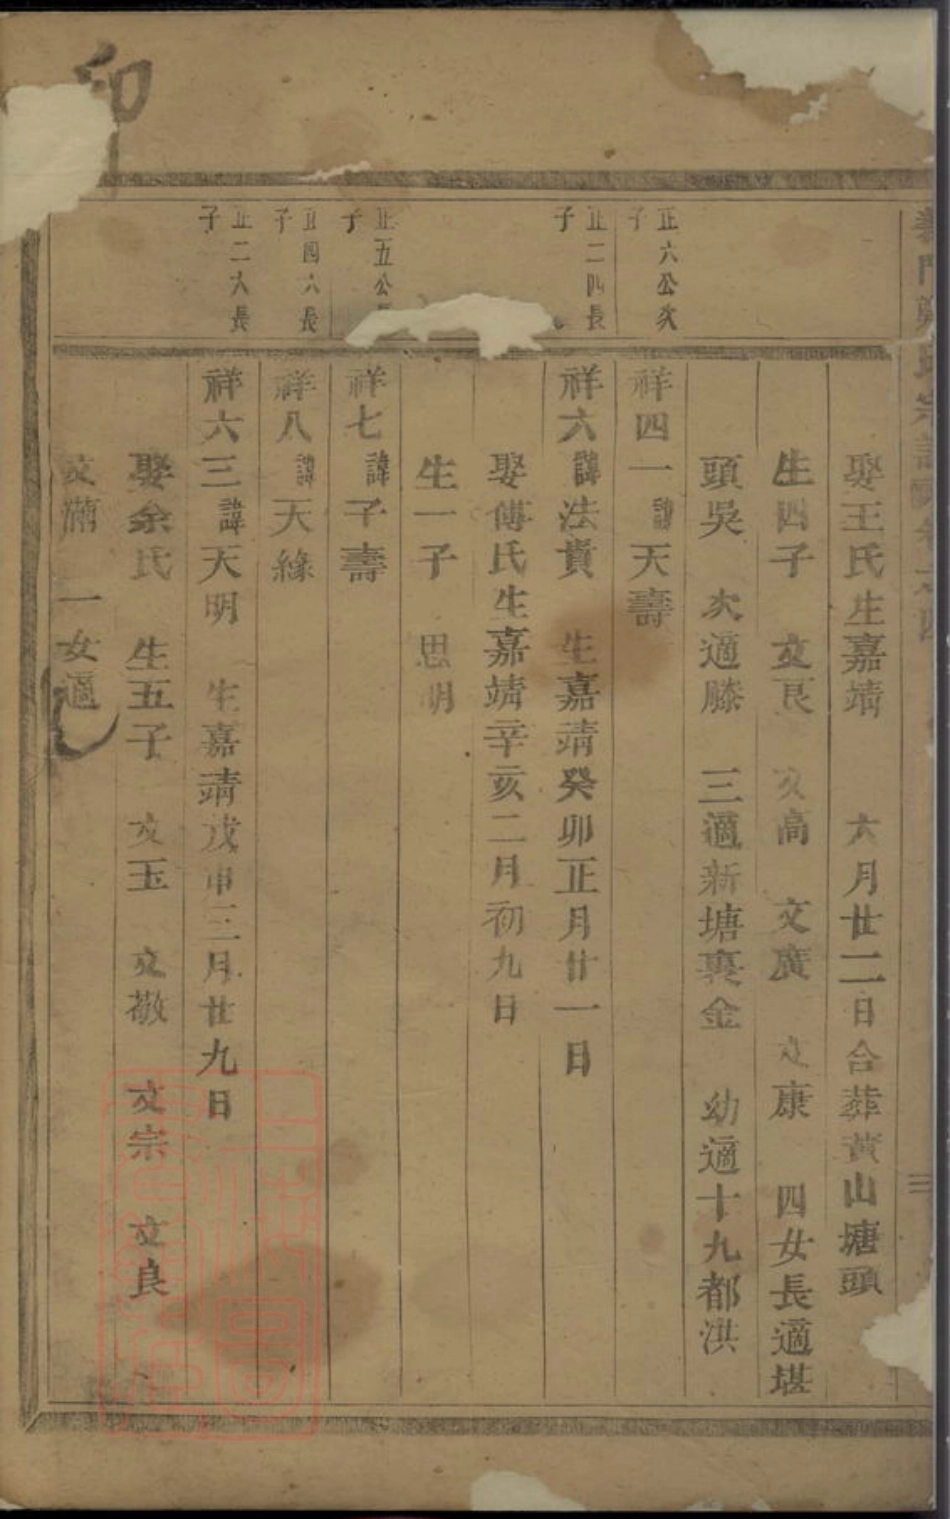 義門鄭氏宗譜 卷之四 三
娶王氏生嘉靖 六月廿二日合葬黃山塘頭
生四子 文艮 文高 文廣 文康 四女長適堪
頭吳 次適滕 三適新塘裏金 幼適十九都洪
正六公次子
祥四一諱天壽
正二四長子
祥六諱法貴 生嘉靖癸卯正月廿一日
娶傅氏生嘉靖辛亥二月初九日
生一子 思明
正五公長子
祥七諱子壽
正四六長子
祥八諱天緣
正二六長子
祥六三諱天明 生嘉靖戊申三月廿九日
娶余氏 生五子 文玉 文敬 文宗 文良
文滿 一女適
印